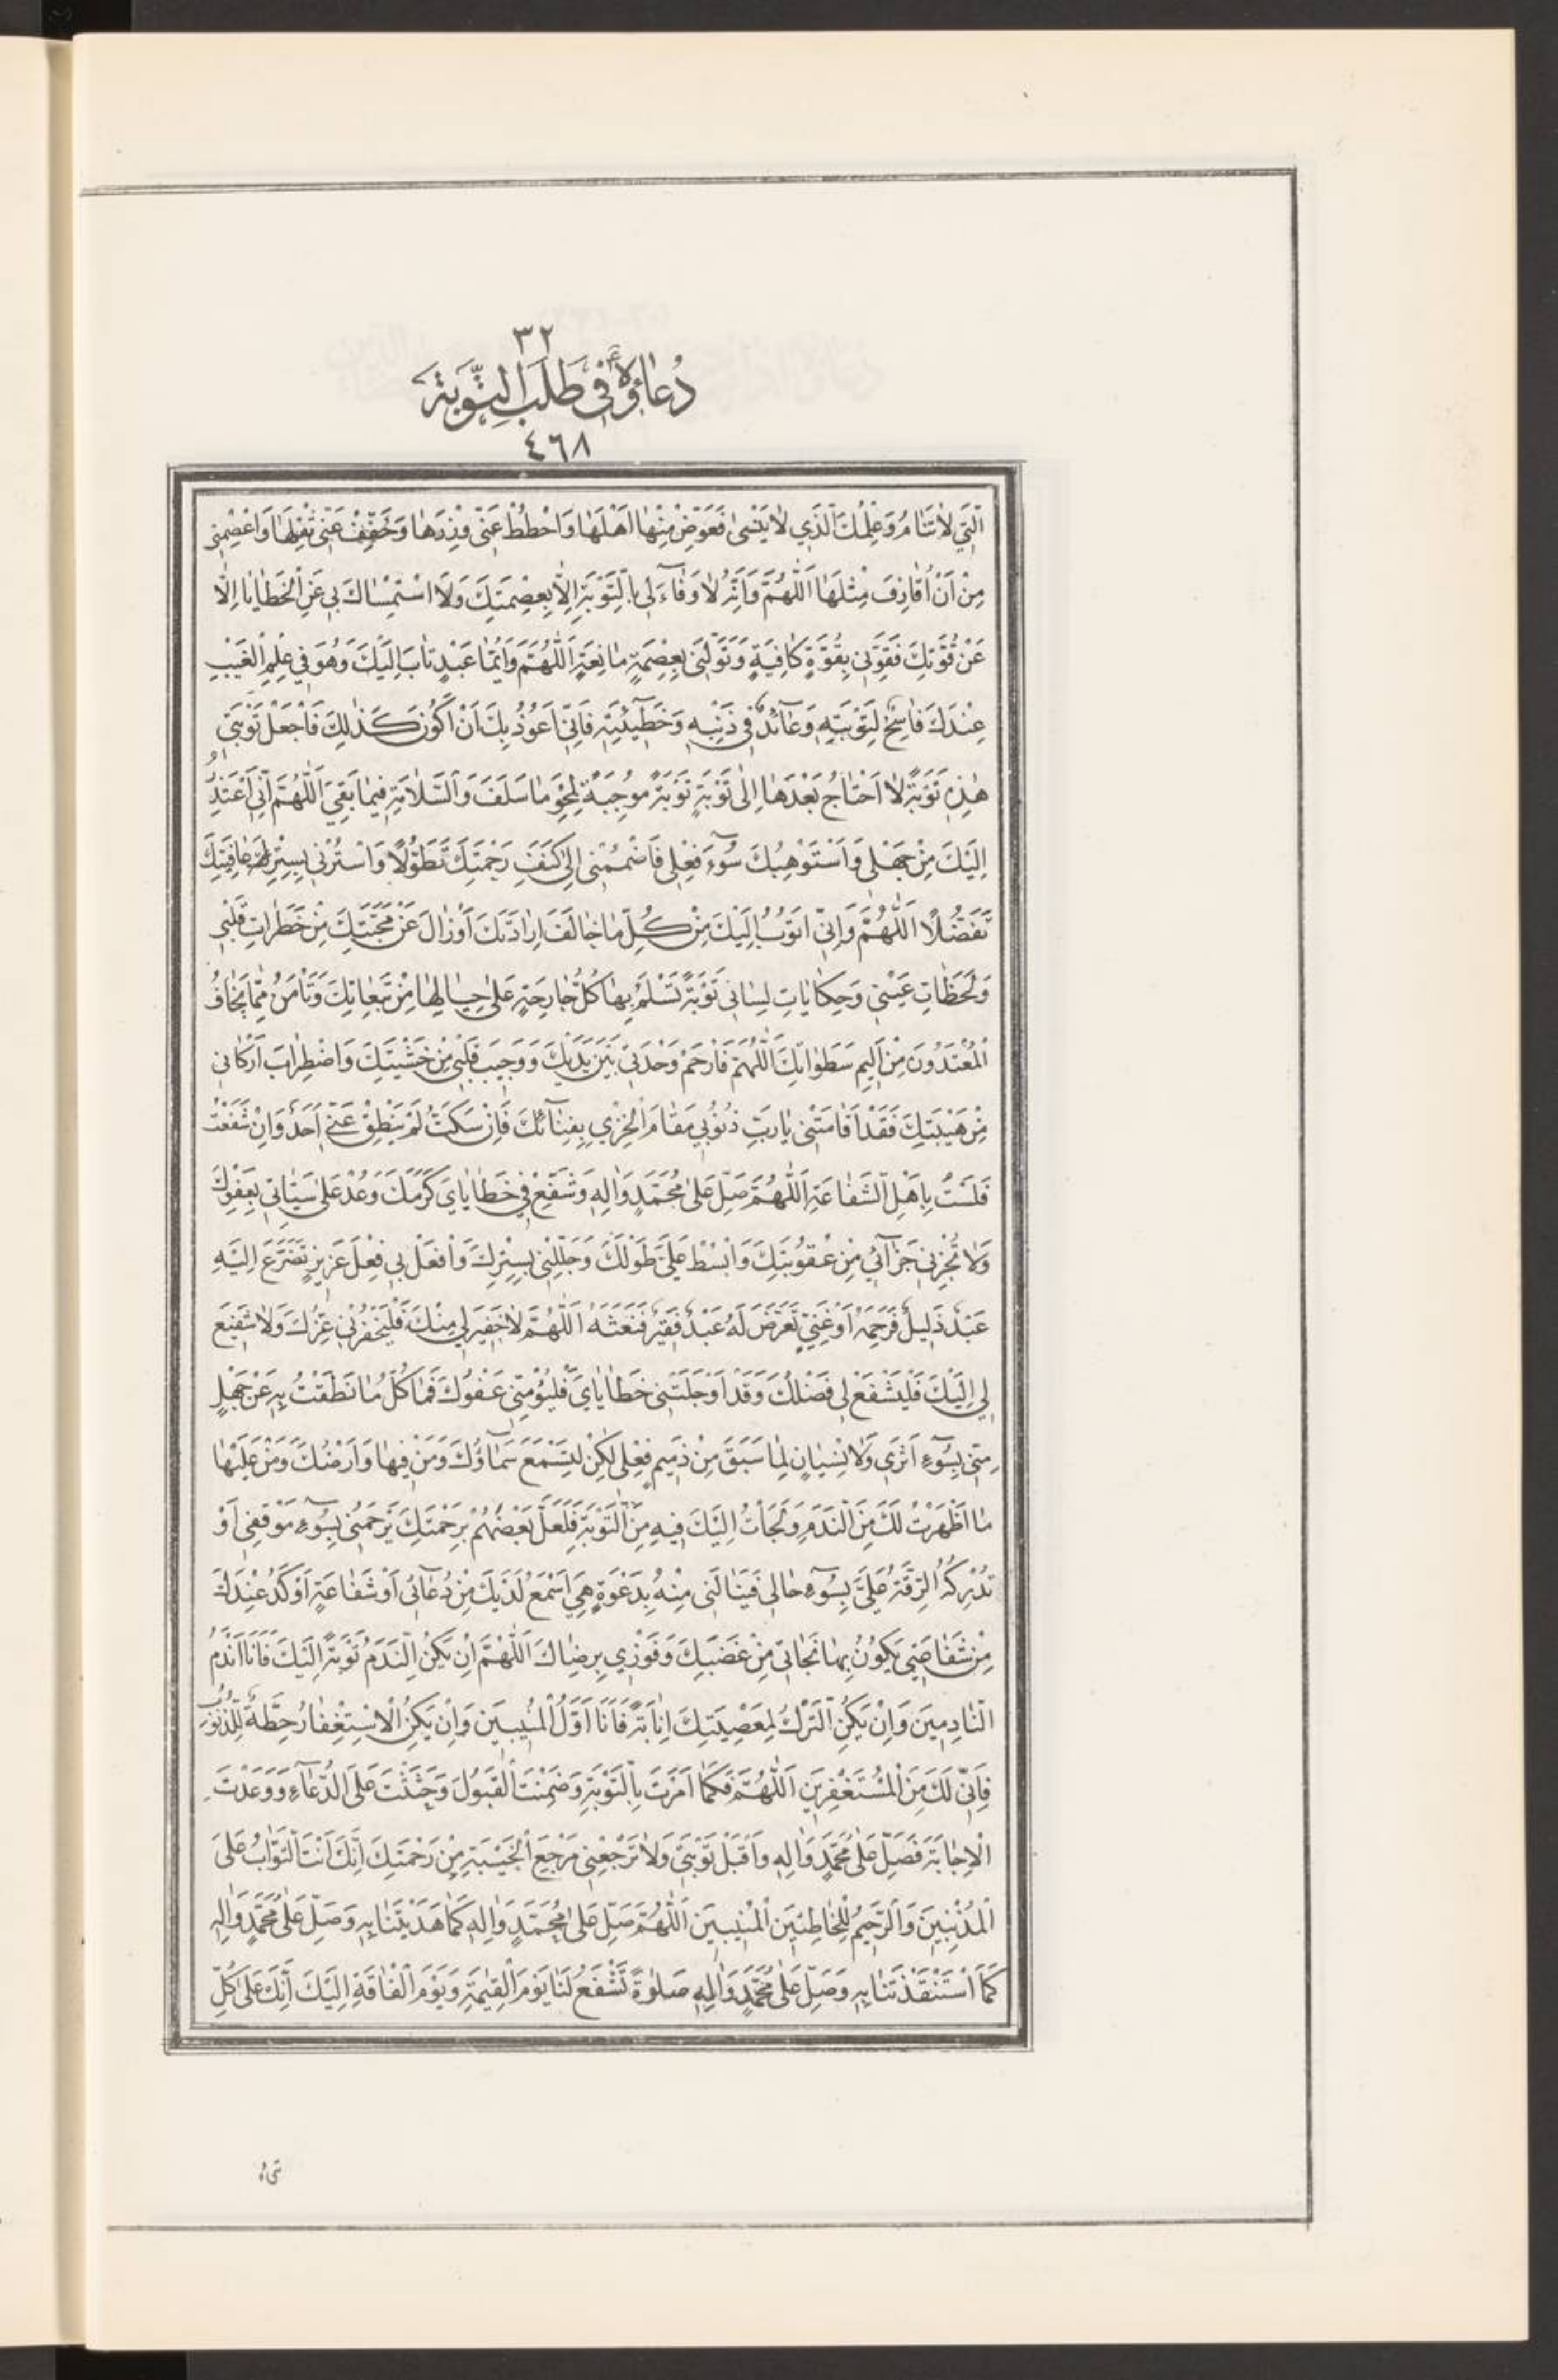 ٣٢
دُعاؤُهُ فِي طَلَبِ التَّوْبَةِ
٤٦٨
الَّتِي لاٰ تَنٰامُ وَعِلْمُكَ الَّذِي لاٰ يَنْسىٰ فَعَوِّضْ مِنْهٰا اَهْلَهٰا وَاحْطُطْ عَنّى وِزْرَهٰا وَخَفِّفْ عَنّى ثِقْلَهٰا وَاعْصِمْنى
مِنْ اَنْ اُقٰارِفَ مِثْلَهٰا اَللّٰهُمَّ وَاِنَّهُ لاٰ وَفٰآءَ لى بِالتَّوْبَةِ اِلاّٰ بِعِصْمَتِكَ وَلاَ اسْتِمْسٰاكَ بى عَنِ الْخَطٰايٰا اِلّٰا
عَنْ قُوَّتِكَ فَقَوِّنى بِقُوَّةٍ كٰافِيَةٍ وَتَوَلَّنى بِعِصْمَةٍ مٰانِعَةٍ اَللّٰهُمَّ وَاَيُّمٰا عَبْدٍ تٰابَ اِلَيْكَ وَهُوَ فى عِلْمِ الْغَيْبِ
عِنْدَكَ فٰاسِخٌ لِتَوْبَتِهِ وَعٰآئِدٌ فى ذَنْبِهِ وَخَطيئَتِهِ فَاِنّى اَعُوذُ بِكَ اَنْ اَكُونَ كَذٰلِكَ فَاجْعَلْ تَوْبَتى
هٰذِهِ تَوْبَةً لاٰ اَحْتٰاجُ بَعْدَهٰا اِلٰى تَوْبَةٍ تَوْبَةً مُوجِبَةً لِمَحْوِ مٰا سَلَفَ وَالسَّلاٰمَةِ فيمٰا بَقِيَ اَللّٰهُمَّ اِنّى اَعْتَذِرُ
اِلَيْكَ مِنْ جَهْلى وَاَسْتَوْهِبُكَ سُوٓءَ فِعْلى فَاضْمُمْنى اِلىٰ كَنَفِ رَحْمَتِكَ تَطَوُّلاً وَاسْتُرْنى بِسِتْرِ عٰافِيَتِكَ
تَفَضُّلاً اَللّٰهُمَّ وَاِنّى اَتُوبُ اِلَيْكَ مِنْ كُلِّ مٰا خٰالَفَ اِرٰادَتَكَ اَوْ زٰالَ عَنْ مَحَبَّتِكَ مِنْ خَطَرٰاتِ قَلْبى
وَلَحَظٰاتِ عَيْنى وَحِكٰايٰاتِ لِسٰانى تَوْبَةً تَسْلَمُ بِهٰا كُلُّ جٰارِحَةٍ عَلىٰ حِيٰالِهٰا مِنْ تَبِعٰاتِكَ وَتَاْمَنُ مِمّٰا يَخٰافُ
الْمُعْتَدُونَ مِنْ اَليمِ سَطَوٰاتِكَ اَللّٰهُمَّ فَارْحَمْ وَحْدَتى بَيْنَ يَدَيْكَ وَوَجيبَ قَلْبى مِنْ خَشْيَتِكَ وَاضْطِرٰابَ اَرْكٰانى
مِنْ هَيْبَتِكَ فَقَدْ اَقٰامَتْنى يٰا رَبِّ ذُنُوبى مَقٰامَ الْخِزْيِ بِفِنٰآئِكَ فَاِنْ سَكَتُّ لَمْ يَنْطِقْ عَنّى اَحَدٌ وَاِنْ شَفَعْتُ
فَلَسْتُ بِاَهْلِ الشَّفٰاعَةِ اَللّٰهُمَّ صَلِّ عَلىٰ مُحَمَّدٍ وَاٰلِهِ وَشَفِّعْ فى خَطٰايٰايَ كَرَمَكَ وَعُدْ عَلىٰ سَيِّئٰاتى بِعَفْوِكَ
وَلاٰ تَجْزِنى جَزٰآئى مِنْ عُقُوبَتِكَ وَابْسُطْ عَلَيَّ طَوْلَكَ وَجَلِّلْنى بِسِتْرِكَ وَافْعَلْ بى فِعْلَ عَزيزٍ تَضَرَّعَ اِلَيْهِ
عَبْدٌ ذَليلٌ فَرَحِمَهُ اَوْ غَنِيٍّ تَعَرَّضَ لَهُ عَبْدٌ فَقيرٌ فَنَعَشَهُ اَللّٰهُمَّ لاٰ خَفيرَ لى مِنْكَ فَلْيَخْفُرْنى عِزُّكَ وَلاٰ شَفيعَ
لى اِلَيْكَ فَلْيَشْفَعْ لى فَضْلُكَ وَقَدْ اَوْجَلَتْنى خَطٰايٰايَ فَلْيُؤْمِنّى عَفْوُكَ فَمٰا كُلُّ مٰا نَطَقْتُ بِهِ عَنْ جَهْلٍ
مِنّى بِسُوٓءِ اَثَرى وَلاٰ نِسْيٰانٍ لِمٰا سَبَقَ مِنْ ذَميمِ فِعْلى لٰكِنْ لِتَسْمَعَ سَمٰآؤُكَ وَمَنْ فيهٰا وَاَرْضُكَ وَمَنْ عَلَيْهٰا
مٰا اَظْهَرْتُ لَكَ مِنَ النَّدَمِ وَلَجَاْتُ اِلَيْكَ فيهِ مِنَ التَّوْبَةِ فَلَعَلَّ بَعْضَهُمْ بِرَحْمَتِكَ يَرْحَمُنى بِسُوٓءِ مَوْقِفى اَوْ
تُدْرِكُهُ الرِّقَّةُ عَلَيَّ بِسُوٓءِ حٰالى فَيَنٰالَنى مِنْهُ بِدَعْوَةٍ هِيَ اَسْمَعُ لَدَيْكَ مِنْ دُعٰآئى اَوْ شَفٰاعَةٍ اَوْكَدُ عِنْدَكَ
مِنْ شَفٰاعَتى يَكُونُ بِهٰا نَجٰاتى مِنْ غَضَبِكَ وَفَوْزى بِرِضٰاكَ اَللّٰهُمَّ اِنْ يَكُنِ النَّدَمُ تَوْبَةً اِلَيْكَ فَاَنَا اَنْدَمُ
النّٰادِمينَ وَاِنْ يَكُنِ التَّرْكُ لِمَعْصِيَتِكَ اِنٰابَةً فَاَنَا اَوَّلُ الْمُنيبينَ وَاِنْ يَكُنِ الْاِسْتِغْفٰارُ حِطَّةً لِلذُّنُوبِ
فَاِنّى لَكَ مِنَ الْمُسْتَغْفِرينَ اَللّٰهُمَّ فَكَمٰا اَمَرْتَ بِالتَّوْبَةِ وَضَمِنْتَ الْقَبُولَ وَحَثَثْتَ عَلَى الدُّعٰآءِ وَوَعَدْتَ
الْاِجٰابَةَ فَصَلِّ عَلىٰ مُحَمَّدٍ وَاٰلِهِ وَاقْبَلْ تَوْبَتى وَلاٰ تَرْجِعْنى مَرْجِعَ الْخَيْبَةِ مِنْ رَحْمَتِكَ اِنَّكَ اَنْتَ التَّوّٰابُ عَلَى
الْمُذْنِبينَ وَالرَّحيمُ لِلْخٰاطِئينَ الْمُنيبينَ اَللّٰهُمَّ صَلِّ عَلىٰ مُحَمَّدٍ وَاٰلِهِ كَمٰا هَدَيْتَنٰا بِهِ وَصَلِّ عَلىٰ مُحَمَّدٍ وَاٰلِهِ
كَمَا اسْتَنْقَذْتَنٰا بِهِ وَصَلِّ عَلىٰ مُحَمَّدٍ وَاٰلِهِ صَلوٰةً تَشْفَعُ لَنٰا يَوْمَ الْقِيٰمَةِ وَيَوْمَ الْفٰاقَةِ اِلَيْكَ اِنَّكَ عَلىٰ كُلِّ